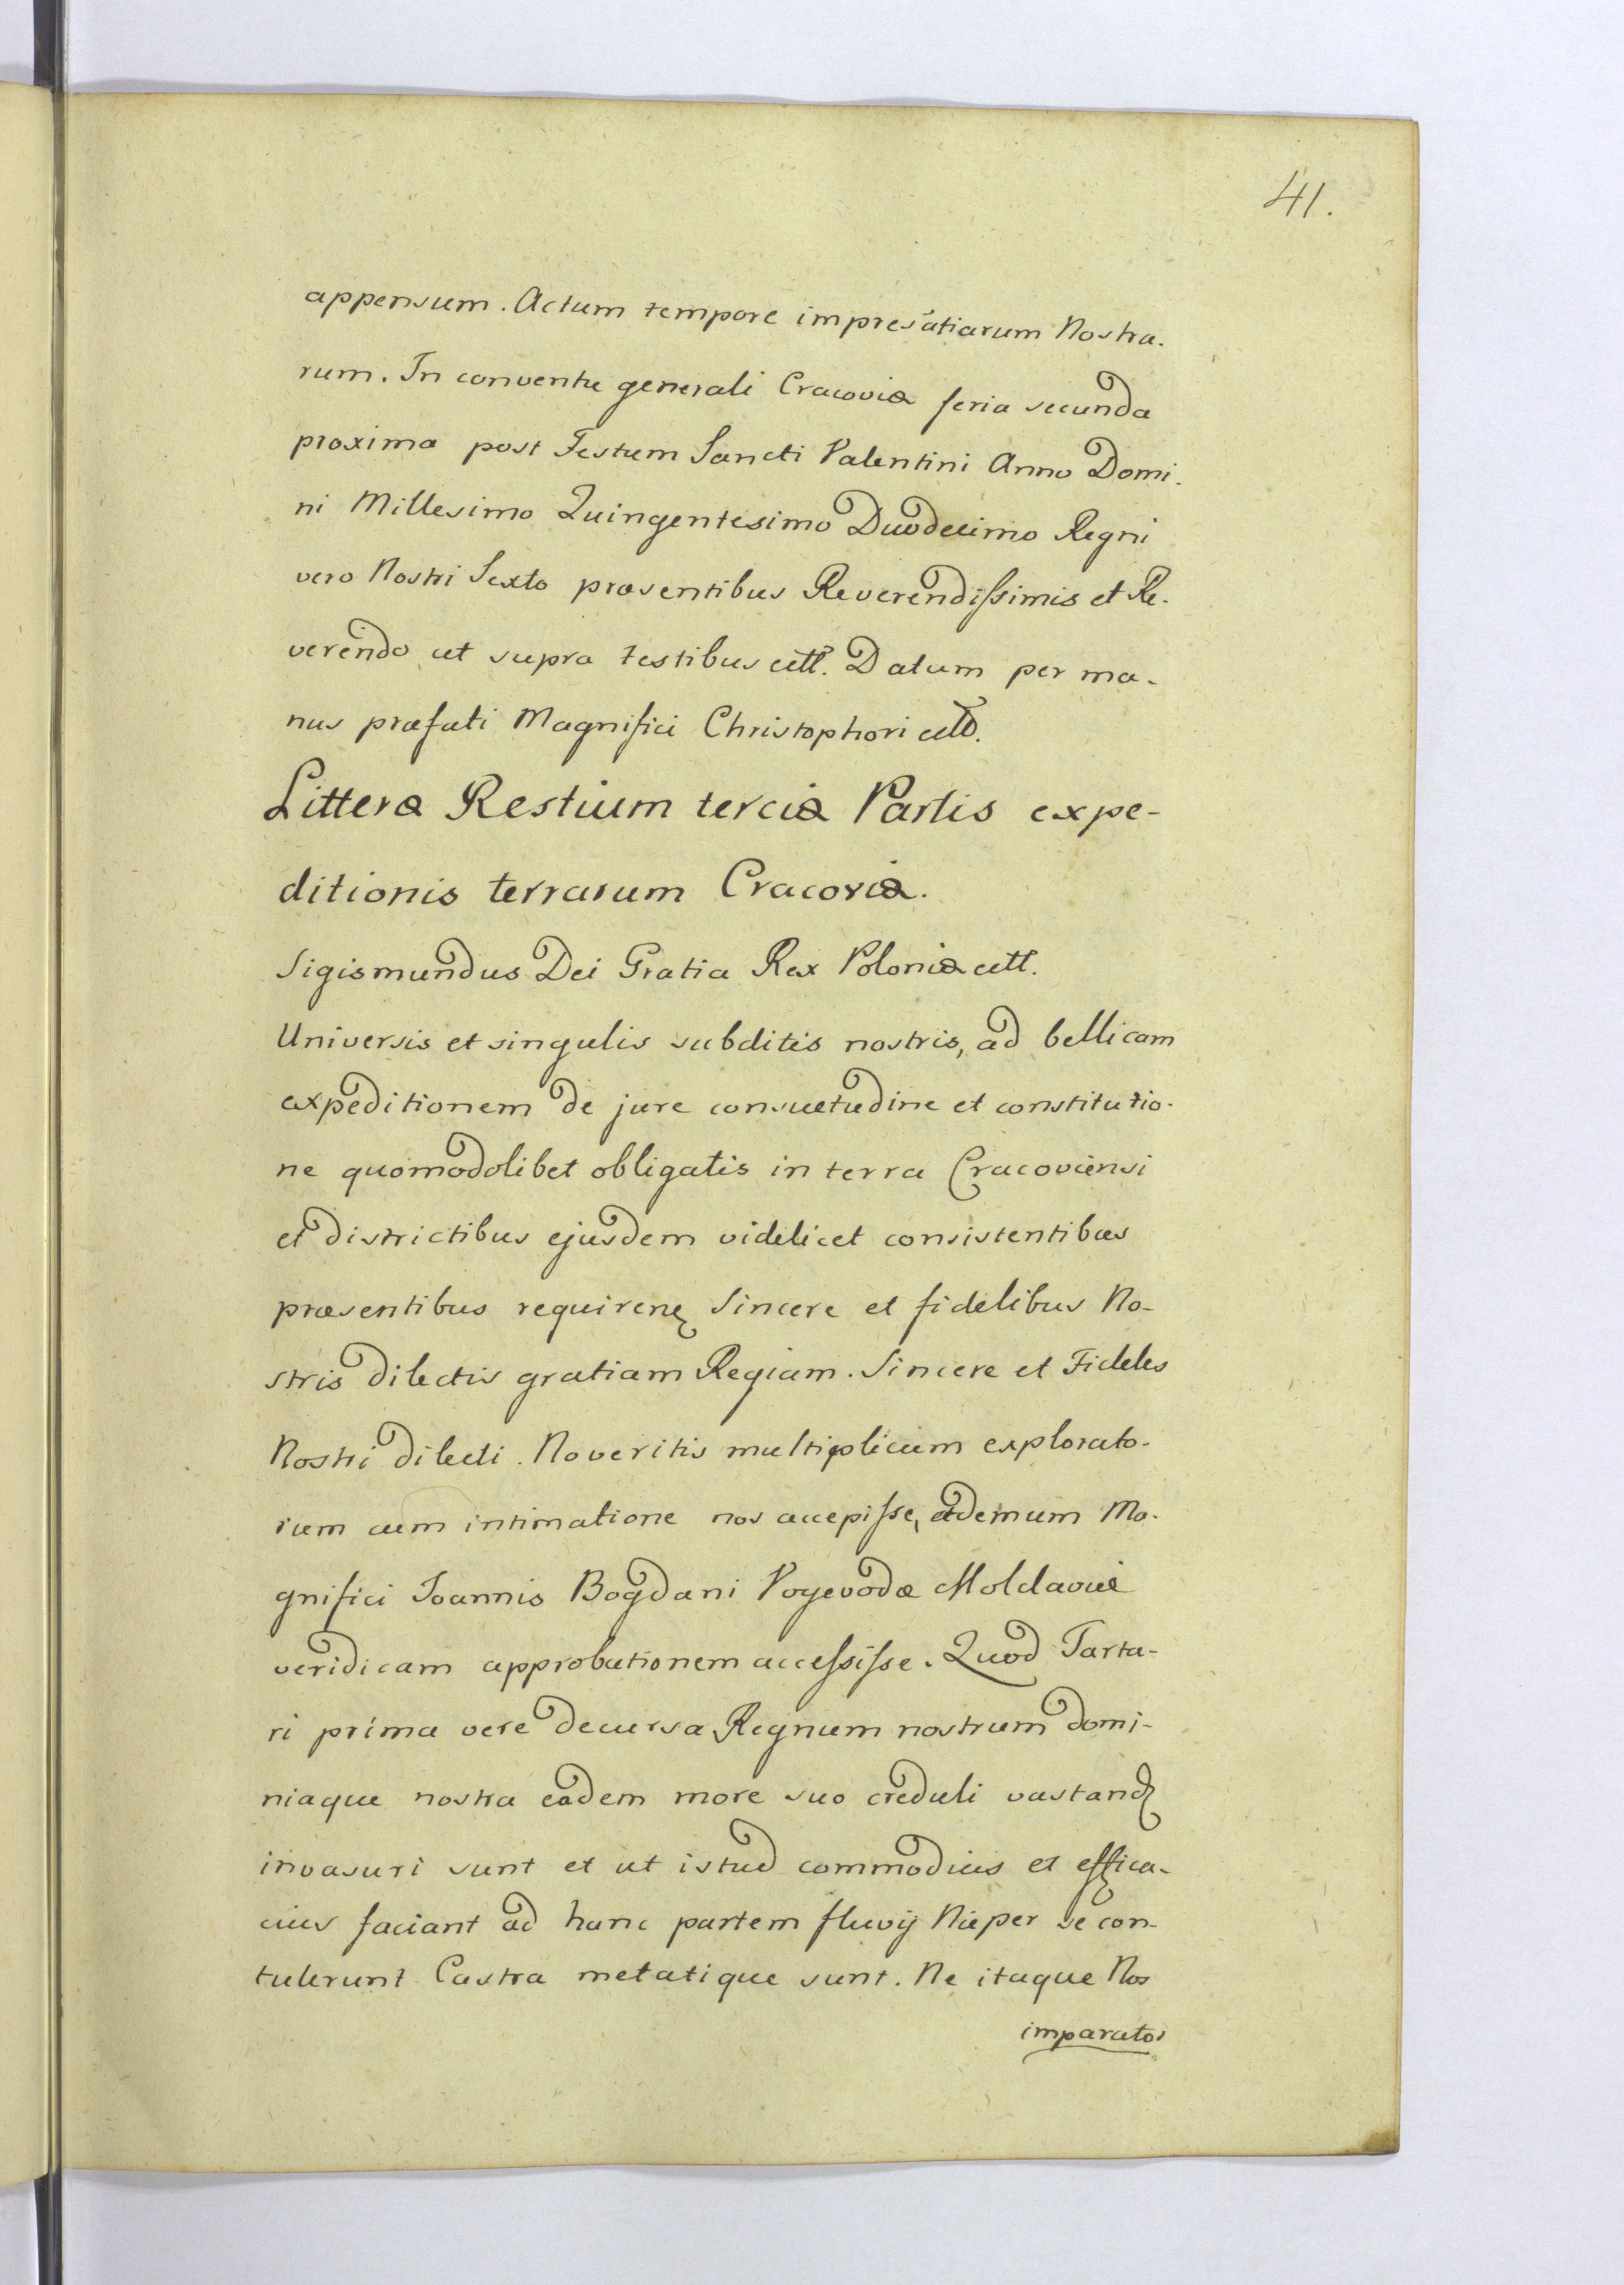 41.
appensum. Actum tempore impres'atiarum Nostra-
rum. In conventu generali Cracoviæ feria secunda
proxima post Festum Sancti Valentini Anno Domi-
ni Millesimo Quingentesimo Duodecimo Regni
vero Nostri Sexto præsentibus Reverendissimis et Re-
verendo ut supra testibus cett. Datum per ma-
nus præfati Magnifici Christophori cett.
Litteræ Restium terciæ Partis expe-
ditionis terrarum Cracoviæ.
Sigismundus Dei Gratia Rex Poloniæ cett.
Universis et singulis subditis nostris, ad bellicam
expeditionem de jure consuetudine et constitutio-
ne quomodolibet obligatis in terra Cracoviensi
et districtibus ejusdem videlicet consistentibus
præsentibus requiren Sincere et fidelibus No-
stris dilectis gratiam Regiam. Sincere et Fideles
Nostri dilecti. Noveritis multiplicem explorato-
rum cum intimatione nos accepisse, ademum Ma-
gnifici Joannis Bogdani Voyevodæ Moldaviæ
veridicam approbationem accessisse. Quod Tarta-
ri prima vere decursa Regnum nostrum domi-
niaque nostra eadem more suo creduli vastand
invasuri sunt et ut istud commodius et effica-
cius faciant ad hanc partem fluvij Nieper se con-
tulerunt Castra metatique sunt. Ne itaque Nos
imparatos